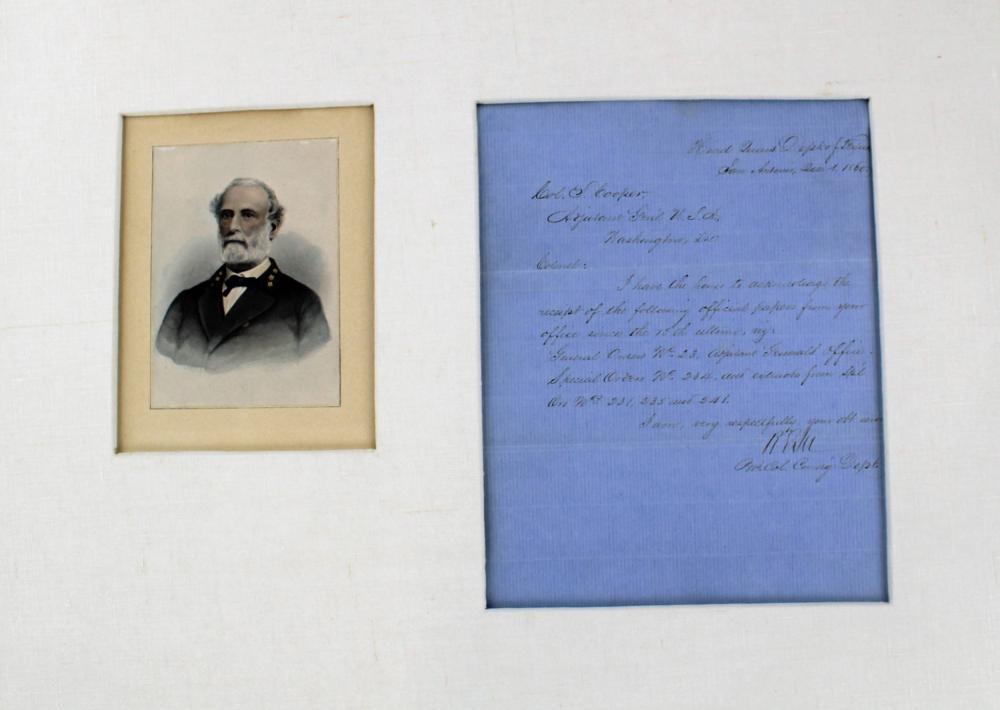 Head Quars Dept. of Texas
San Antonio, Dec. 1, 1860.
Col. S. Cooper,
Adjutant Genl. U.S.A.
Washington, D.C.
Colonel:
I have the honor to acknowledge the
receipt of the following official papers from your
office since the 10th ultimo, viz:
General Orders No. 23, Adjutant General's Office.
Special Orders No. 234, and extracts from Spl
Ors Nos. 231, 235 and 241.
I am, very respectfully, your obt serv
R E Lee
Bvt. Col. Comg Dept.